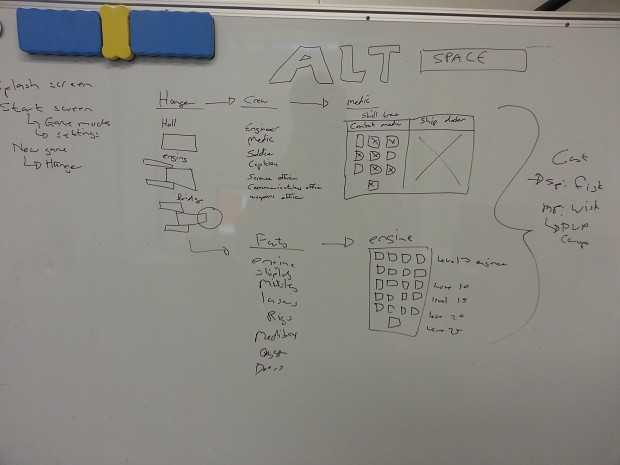 ALT SPACE
Splash screen
Start screen
Game modes
settings
New game
Hanger
Hanger
Hull
engine
Bridge
Crew
Engineer
medic
Soldier
Captain
Science officer
Communications officer
weapons officer
medic
Skill tree
Combat medic
Ship doctor
Parts
engine
Shields
Modules
lasers
Rigs
Medibay
Oxygen
Doors
engine
level 5 engineer
level 10
level 15
level 20
level 25
Cost
PVP